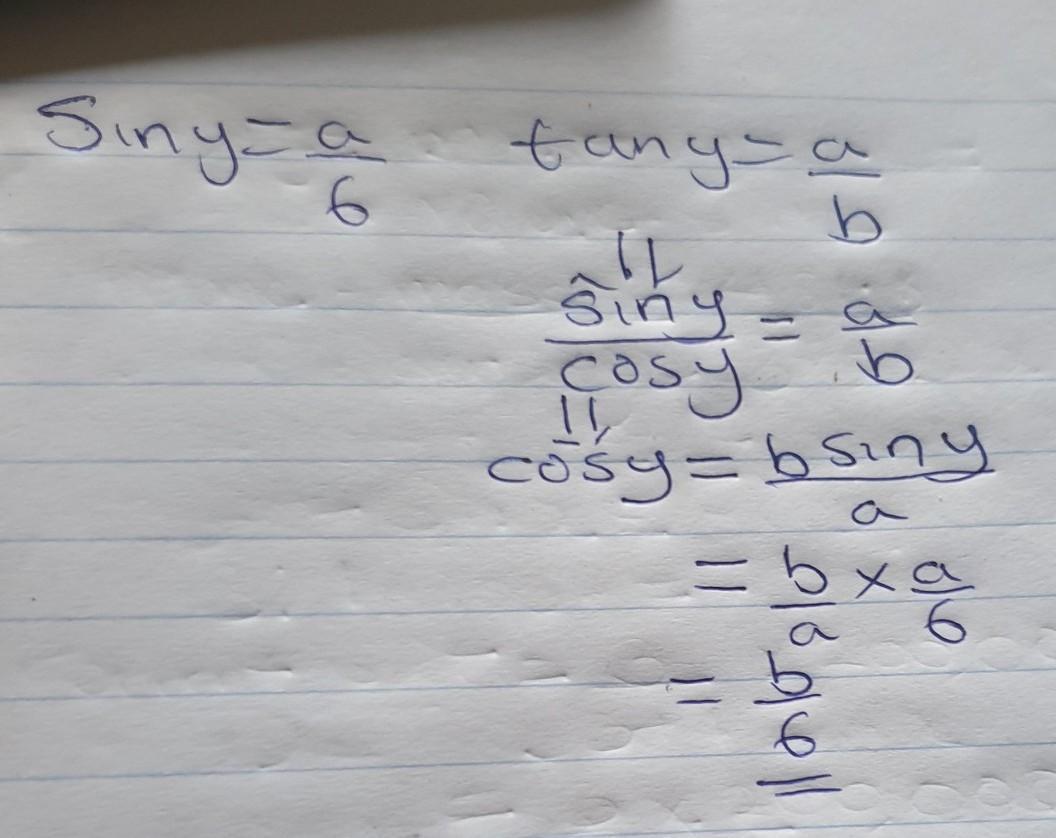 Siny = a/6 tany = a/b
siny/cosy = a/b
cosy = bsiny/a
= b/a × a/6
= b/6